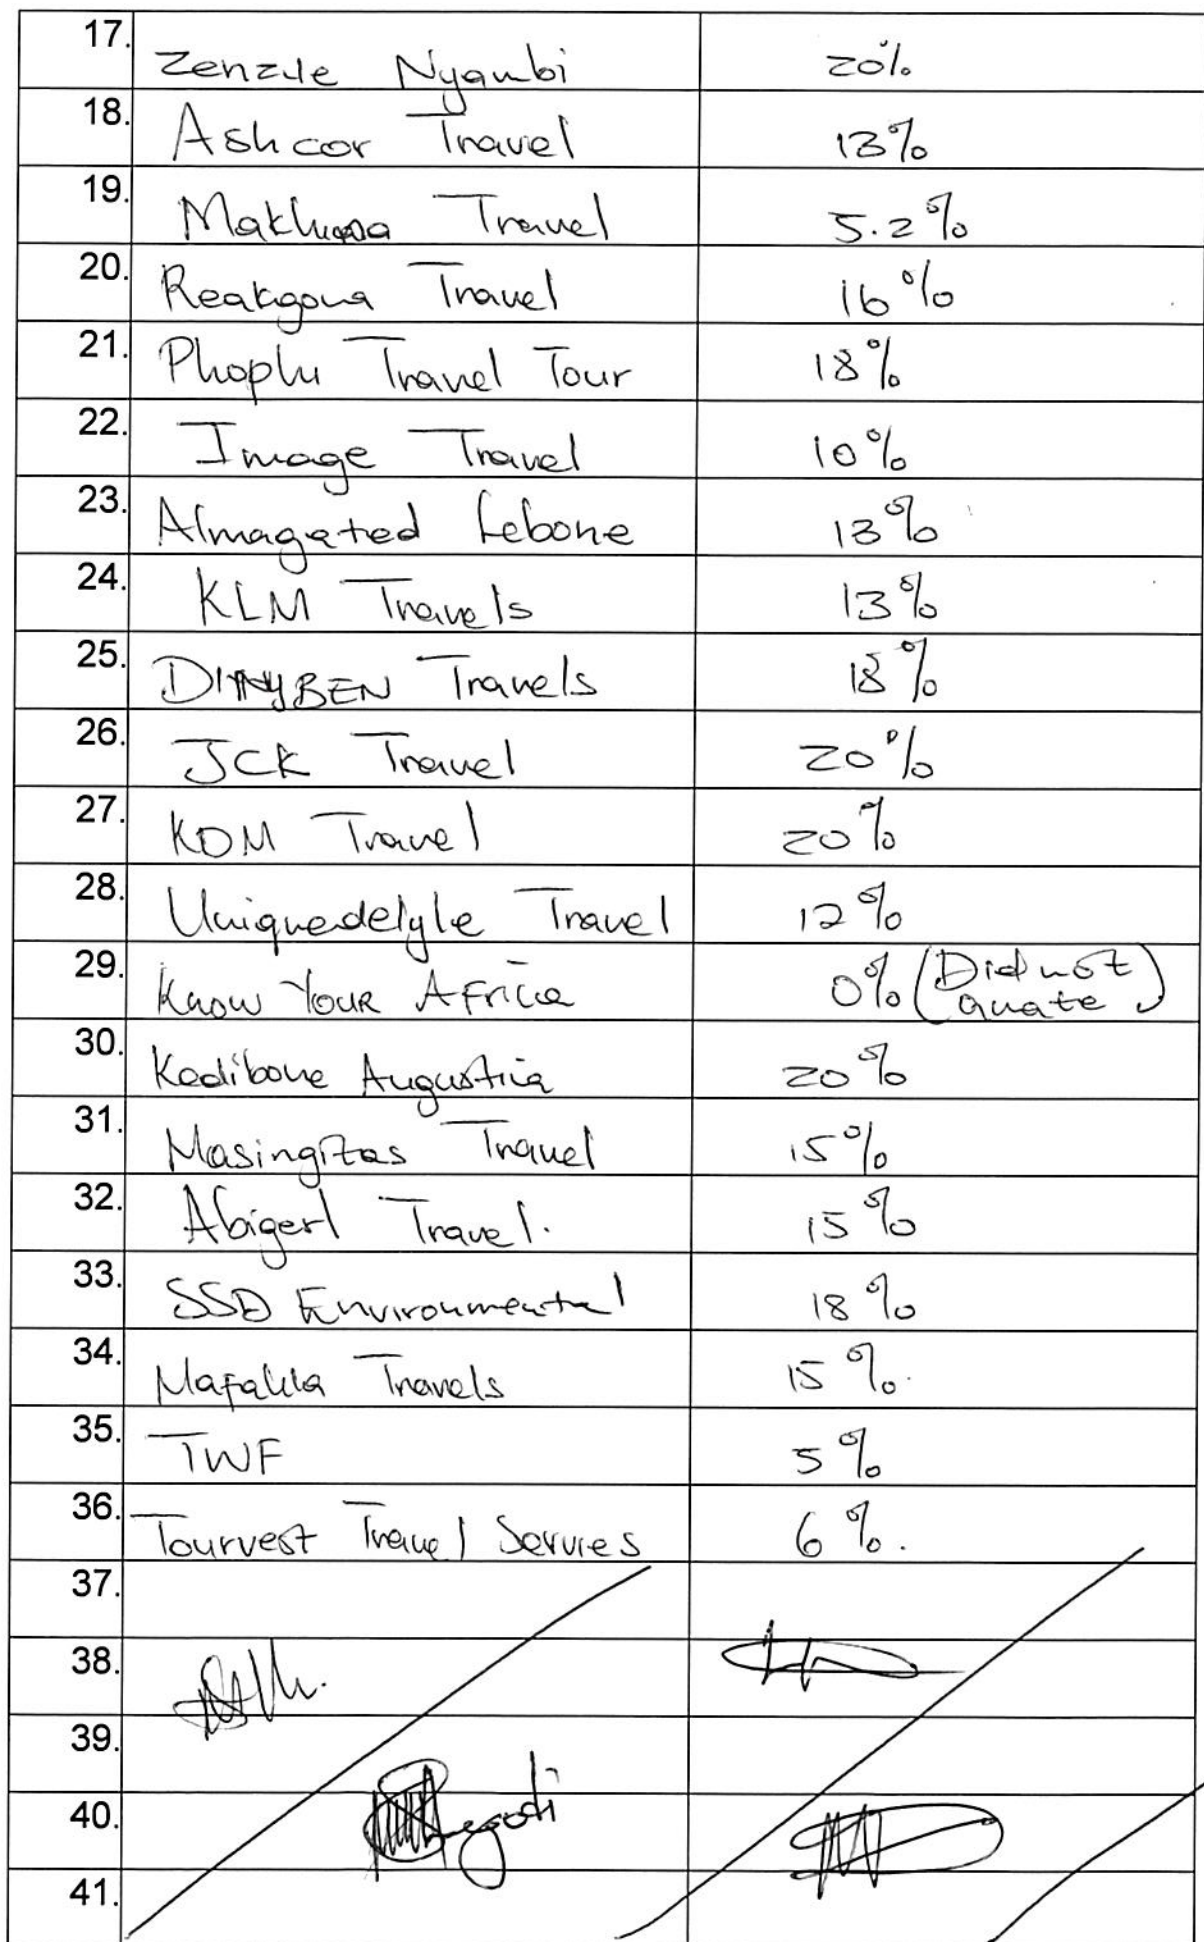 17. Zenzile Nyambi 20%
18. Ashcor Travel 13%
19. Travel 5.2%
20. Reakgona Travel 16%
21. Phophi Travel Tour 18%
22. Image Travel 10%
23. Almagated Lebone 13%
24. KLM Travels 13%
25. Travels 18%
26. JCK Travel 20%
27. KDM Travel 20%
28. Uniquedelyle Travel 12%
29. Know Your Africa 0% (Did not quate)
30. Kedibone Augustina 20%
31. Masingitas Travel 15%
32. Abigerl Travel. 15%
33. SSD Environmental 18%
34. Travels 15%.
35. TWF 5%
36. Tourvest Travel Servies 6%.
37.
38.
39.
40.
41.